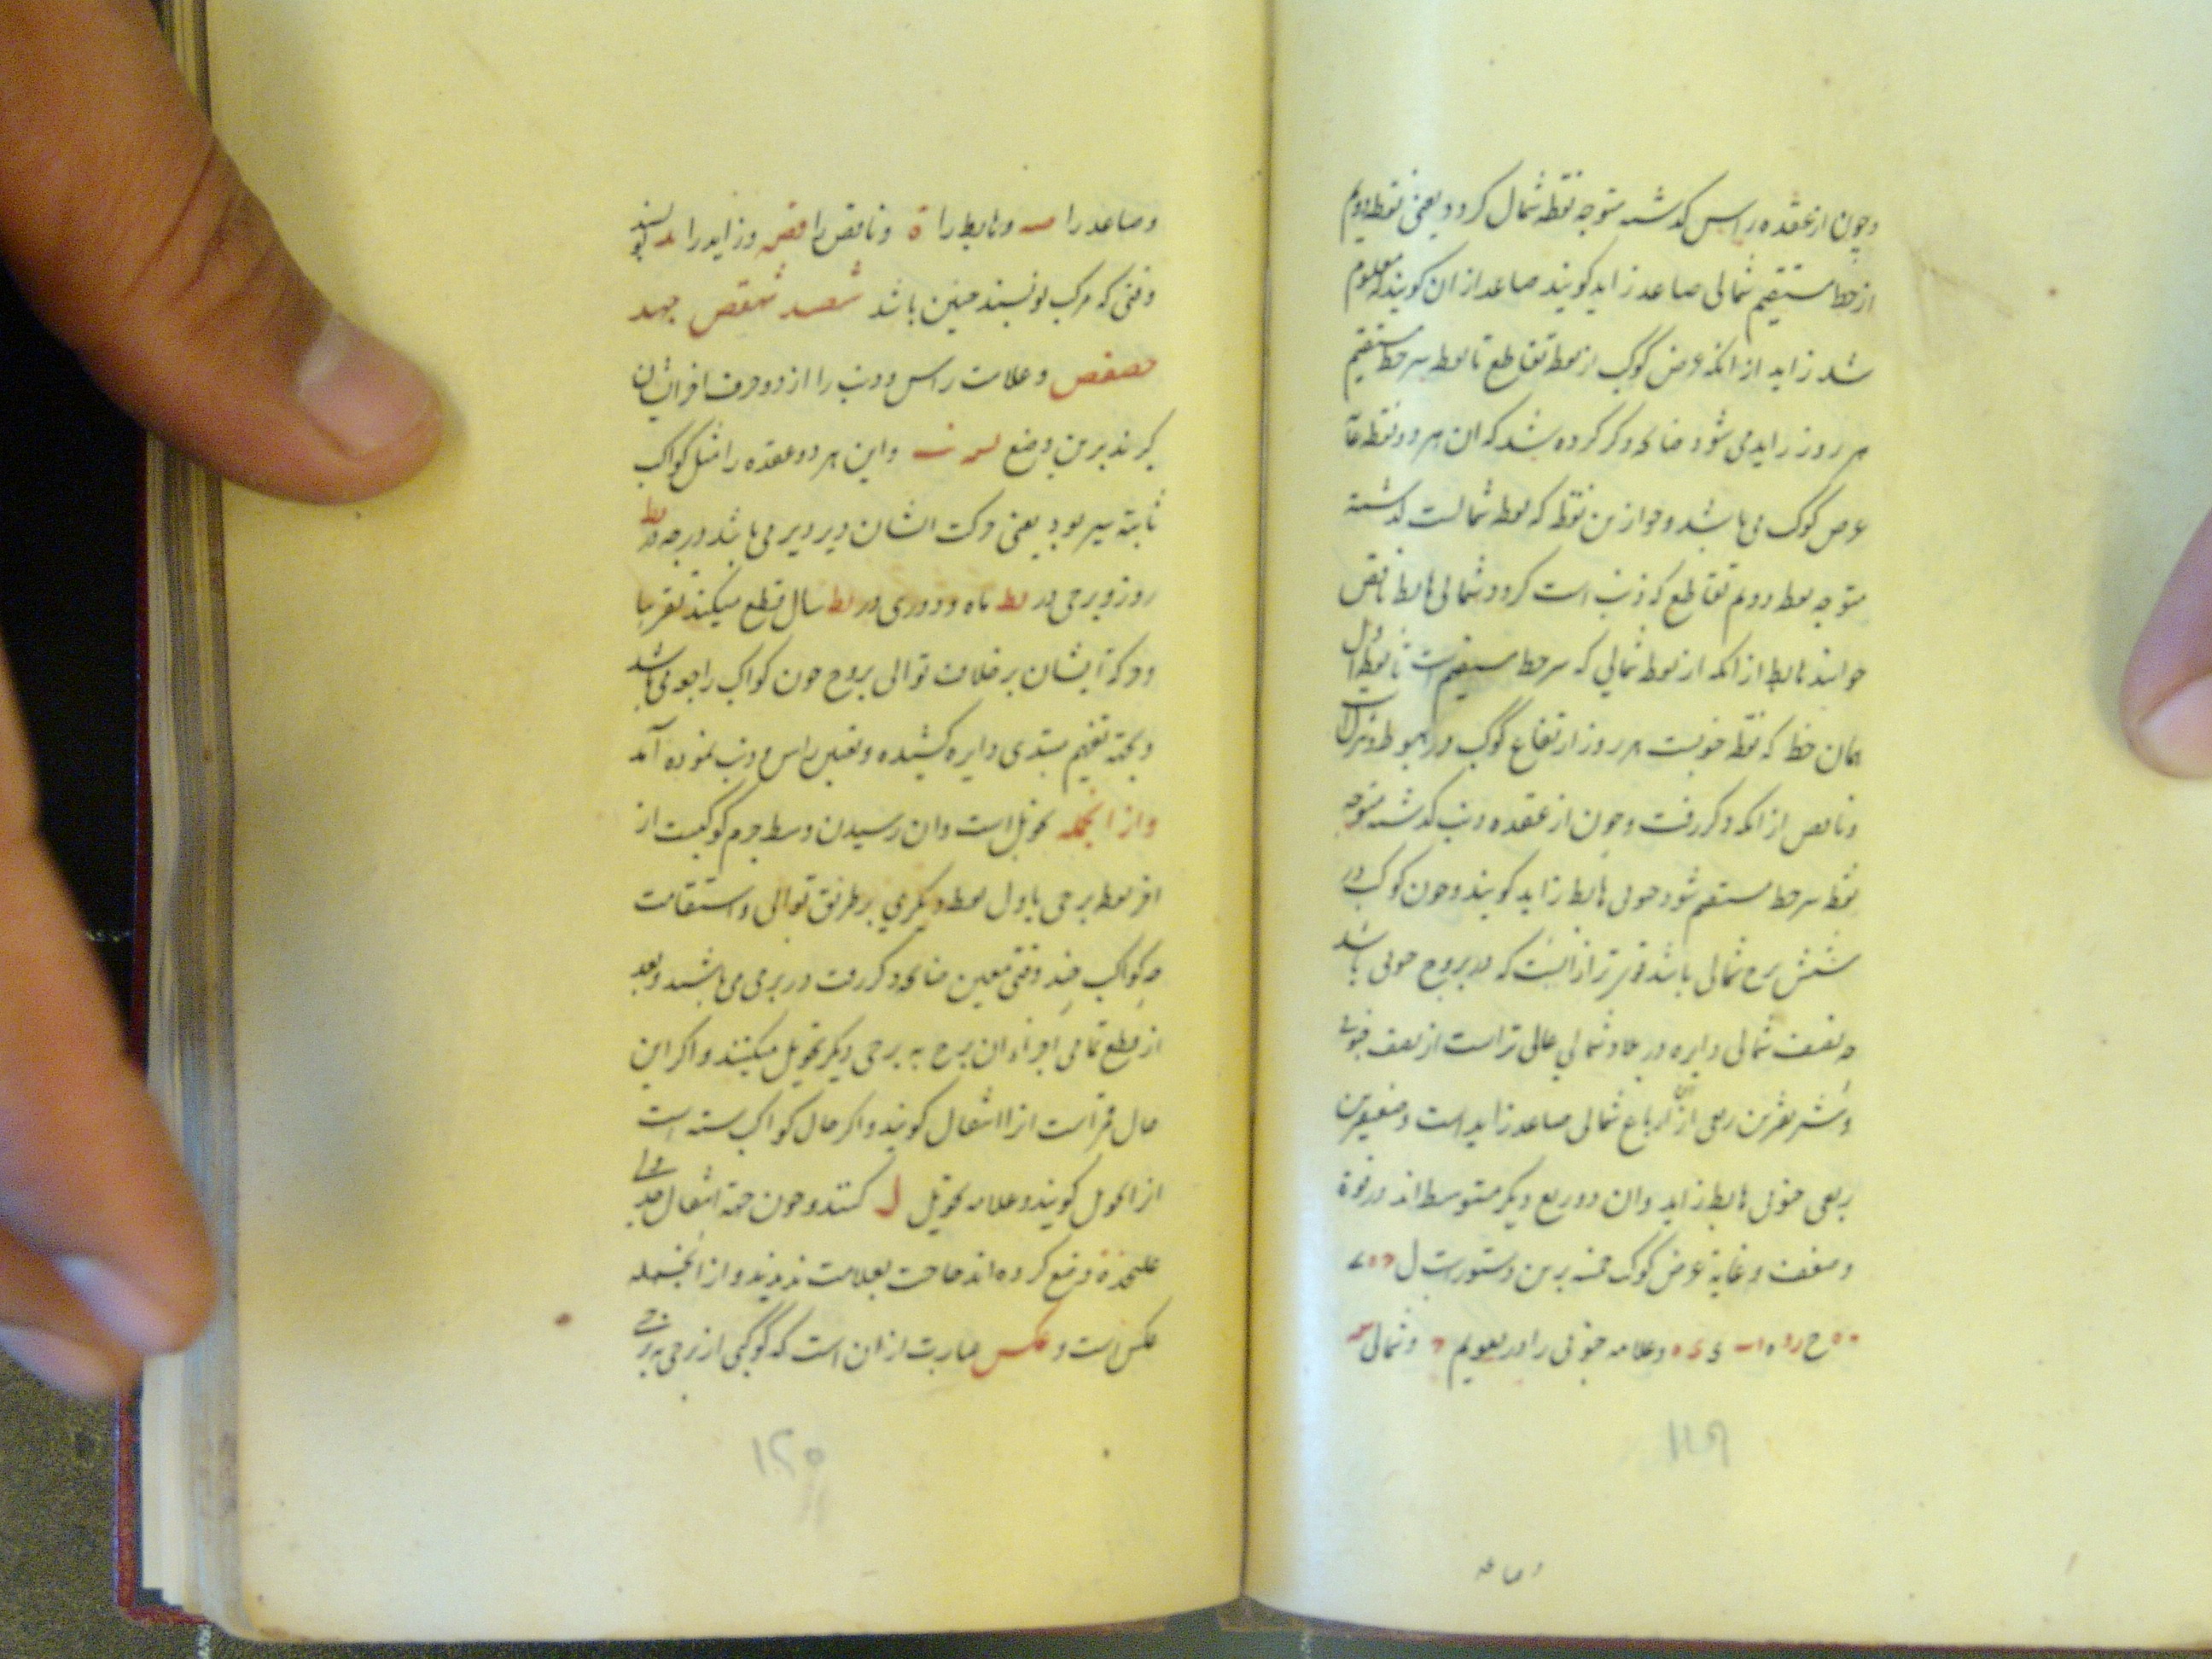 وچون از عقده راس کذشته متوجه نقطه شمال کردد یعنی نقطه دوم
از خط مستقیم شمالی صاعد زاید کویند صاعد از ان کویند که معلوم
شد زاید از انکه عرض کوکب از نقطه تقاطع تا نقطه سر خط مستقیم
هر روز زاید می شود چنانکه ذکر کرده شد که ان هر دو نقطه
عرض کوکب می باشد و چو از ین نقطه که نقطه شمالست کذشته
متوجه نقطه دوم تقاطع که ذنب است کردد شمالی هابط ناقص
خوانند هابط از انکه از نقطه شمالی که سر خط مستقیم است تا نقطه اول
همان خط که نقطه جنوبست هر روز ارتفاع کوکب در هبوط و نزول است
و ناقص از انکه ذکر رفت و چون از عقده ذنب کذشته متوجه
نقطه سر خط مستقیم شود جنوبی هابط زاید کویند و چون کوکب در
شش برج شمالی باشد قوی تر از انست که در بروج جنوبی باشد
چه نصف شمالی دایره در بلاد شمالی عالی تر است از نصف جنوبی
و ربعی از ان ارباع شمالی صاعد زاید است و ضعیف ترین
ربعی جنوبی هابط زاید وان دو ربع دیکر متوسط اند در قوة
و ضعف و غایة عرض کوکب خمسه برین دستور است ل
وعلامه جنوبی را در تقویم و شمالی
وصاعد
۱۱۹
وصاعد را صه وهابط را ة وناقص را قص وزاید را ید نویسند
وقتی که مرکب نویسند چنین باشد شصید شهقص جهد
جصقص وعلامت راس وذنب را از دو حرف اخر ایشان
کیرند برین وضع س ب واین هر دو عقده را مثل کواکب
ثابته سیر بود یعنی حرکت ایشان دیر دیر می باشد درجه در یط
روز وبرجی در یط ماه ودوری در یط سال قطع میکنند تقریبا
وحرکة ایشان بر خلاف توالی بروج چون کواکب راجعه می باشد
وبجهة تفهیم مبتدی دایره کشیده وتعین راس وذنب نموده آمد
واز انجمله تحویل است وان رسیدن وسط جرم کوکبست از
اخر نقطه برجی باول نقطه دیکری بر طریق توالی واستقامت
چه کواکب چند وقتی معین چنانکه ذکر رفت در برجی می باشند وبعد
از قطع تمامی اجزاء ان برج به برجی دیکر تحویل میکنند واکر این
حال قمر است انرا انتقال کویند واکر حال کواکب سته است
انرا تحویل کویند وعلامه تحویل ل کنند وچون جهة انتقال جدولی
علیحده وضع کرده اند حاجت بعلامت ندیدند واز انجمله
عکس است وعکس عبارت از ان است که کوکبی از برجی به برجی
۱۲۰